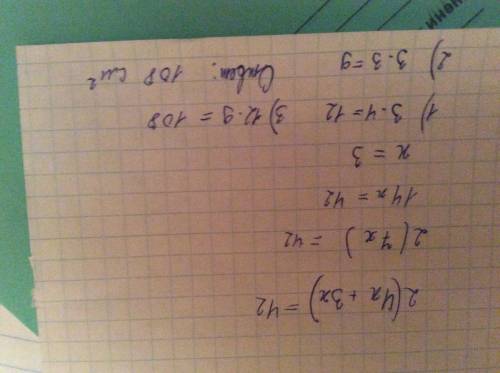 2(4x + 3x) = 42
2(7x) = 42
14x = 42
x = 3
1) 3·4=12 3) 12·9 = 108
2) 3·3=9 Ответ: 108 см²